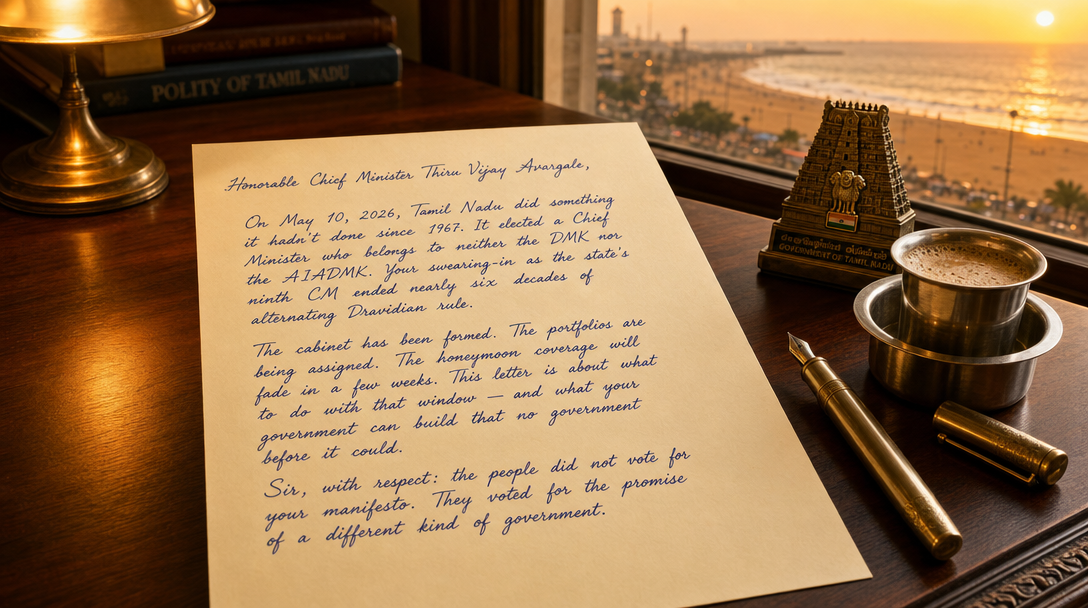 POLITY OF TAMIL NADU
Honorable Chief Minister Thiru Vijay Avargale,
On May 10, 2026, Tamil Nadu did something
it hadn't done since 1967. It elected a Chief
Minister who belongs to neither the DMK nor
the AIADMK. Your swearing-in as the state's
ninth CM ended nearly six decades of
alternating Dravidian rule.
The cabinet has been formed. The portfolios are
being assigned. The honeymoon coverage will
fade in a few weeks. This letter is about what
to do with that window — and what your
government can build that no government
before it could.
Sir, with respect: the people did not vote for
your manifesto. They voted for the promise
of a different kind of government.
GOVERNMENT OF TAMIL NADU